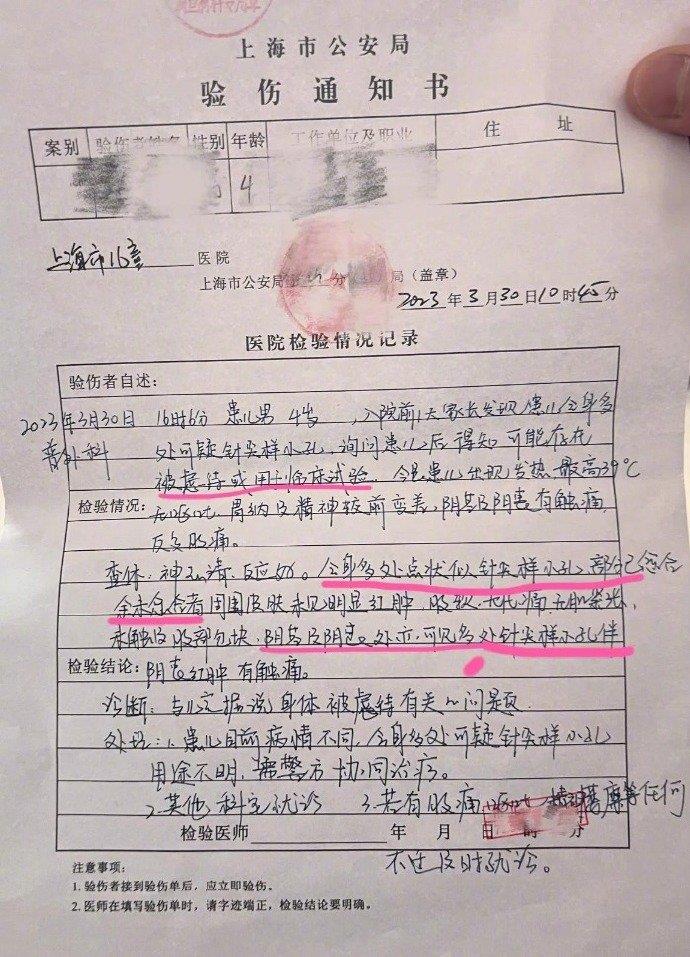 上海市公安局
验伤通知书
案别 验伤者姓名 性别 年龄 工作单位及职业 住 址
4
上海市儿童 医院
上海市公安局 分 局（盖章）
2023年3月30日10时45分
医院检验情况记录
验伤者自述：
2023年3月30日 16时6分 患儿男 4岁，入院前1天家长发现患儿全身多
普外科 处可疑针尖样小孔，询问患儿后得知可能存在
被虐待或用于临床试验，今患儿出现发热 最高39℃
检验情况： 无呕吐，胃纳及精神较前变差，阴茎及阴囊有触痛，
反复腹痛。
查体：神志清，反应好。全身多处点状似针尖样小孔 部分已愈合
余未愈合者周围皮肤未见明显红肿，腹软，无压痛，无肌紧张，
未触及腹部包块，阴茎及阴囊处亦可见多处针尖样小孔伴
检验结论： 阴囊红肿 有触痛。
诊断：与 据说身体被虐待有关的问题
处理：1.患儿目前病情不同，全身多处可疑针尖样小孔
用途不明，需警方协同治疗。
2.其他科室就诊 3.若有腹痛 等任何
检验医师 年 月 日 时 分
不适及时就诊。
注意事项：
1. 验伤者接到验伤单后，应立即验伤。
2. 医师在填写验伤单时，请字迹端正，检验结论要明确。